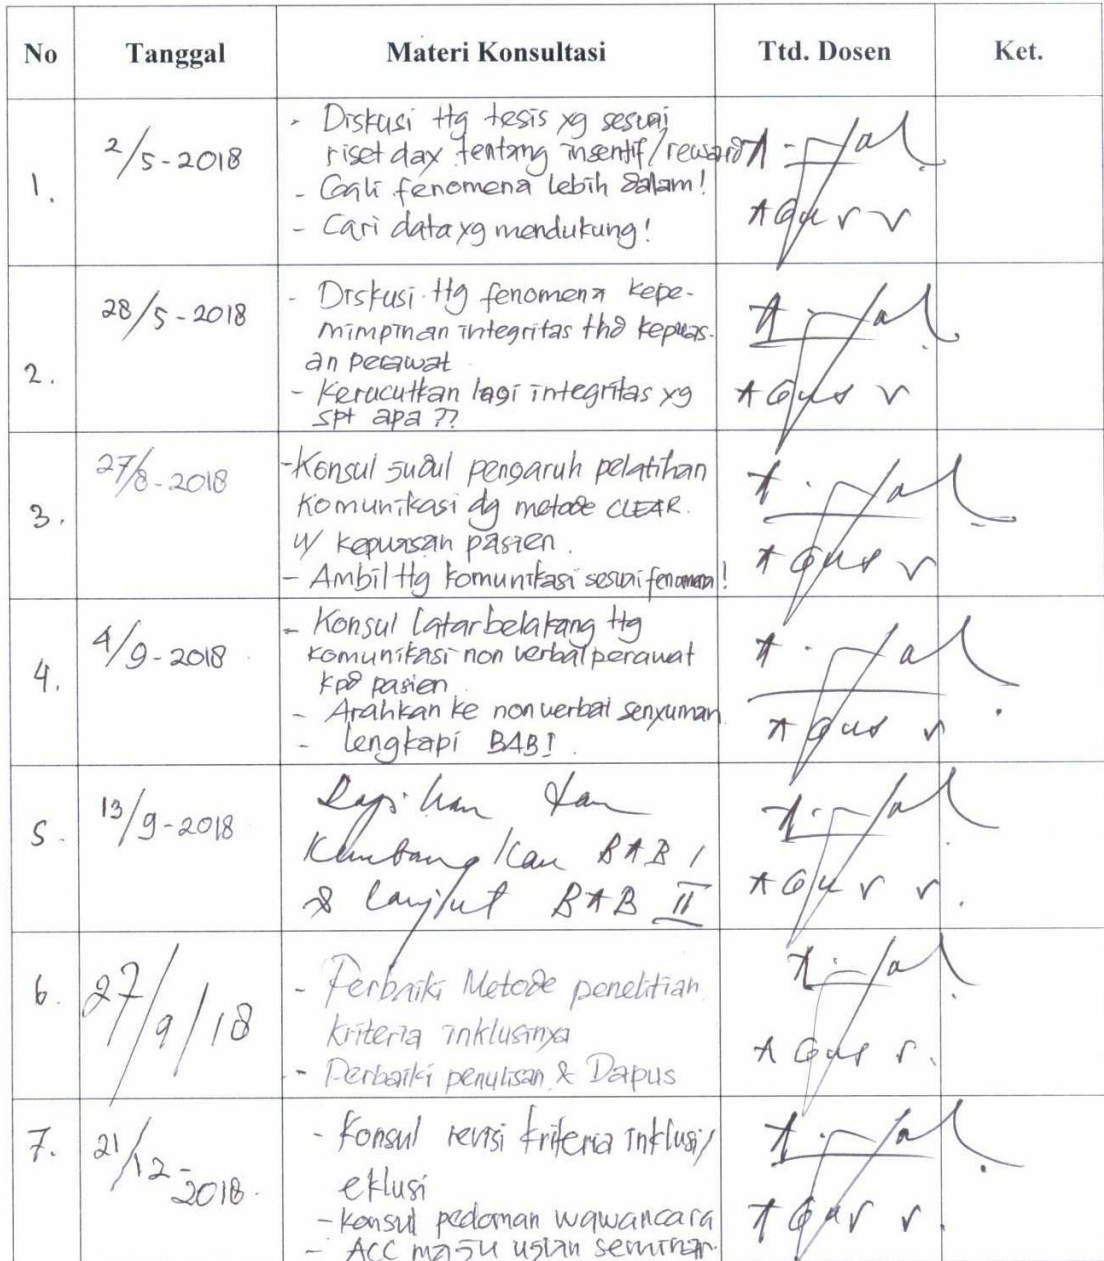 No Tanggal Materi Konsultasi Ttd. Dosen Ket.
1. 2/5-2018
- Diskusi ttg tesis yg sesuai
riset day tentang insentif/reward
- Gali fenomena lebih dalam!
- Cari data yg mendukung!
Agus
2. 28/5-2018
- Diskusi ttg fenomena kepe-
mimpinan integritas thd kepuas-
an perawat
- Kerucutkan lagi integritas yg
spt apa ??
Agus
3. 27/8-2018
- Konsul judul pengaruh pelatihan
komunikasi dg metode CLEAR.
u/ kepuasan pasien.
- Ambil ttg komunikasi sesuai fenomena!
Agus
4. 4/9-2018
- Konsul latar belakang ttg
komunikasi non verbal perawat
kpd pasien
- Arahkan ke non verbal senyuman
- lengkapi BAB I.
Agus
5. 13/9-2018
Rapihan dan
Kembangkan BAB I
& lanjut BAB II
Agus
6. 27/9/18
- Perbaiki Metode penelitian
kriteria inklusinya
- Perbaiki penulisan & Dapus
Agus
7. 21/12-2018.
- Konsul revisi kriteria inklusi/
eklusi
- Konsul pedoman wawancara
- ACC maju ujian seminar.
Agus